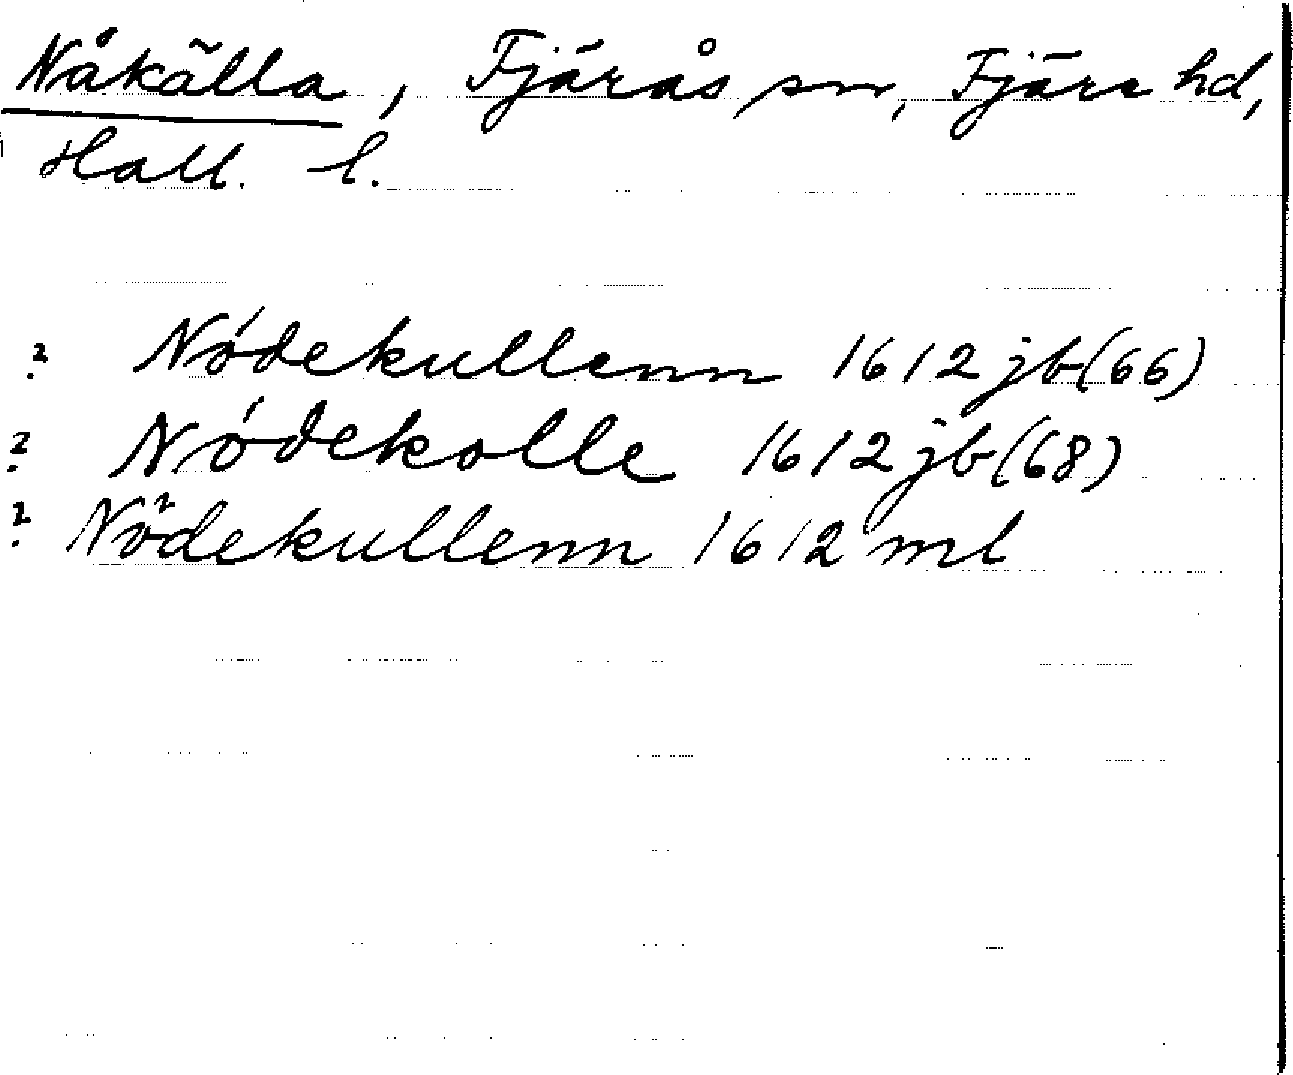 Nåkälla, Fjärås sn, Fjäre hd,
Hall. l.
? Nódekullenn 1612 jb(66)
? Nódekolle 1612 jb(68)
? Nödekullenn 1612 ml